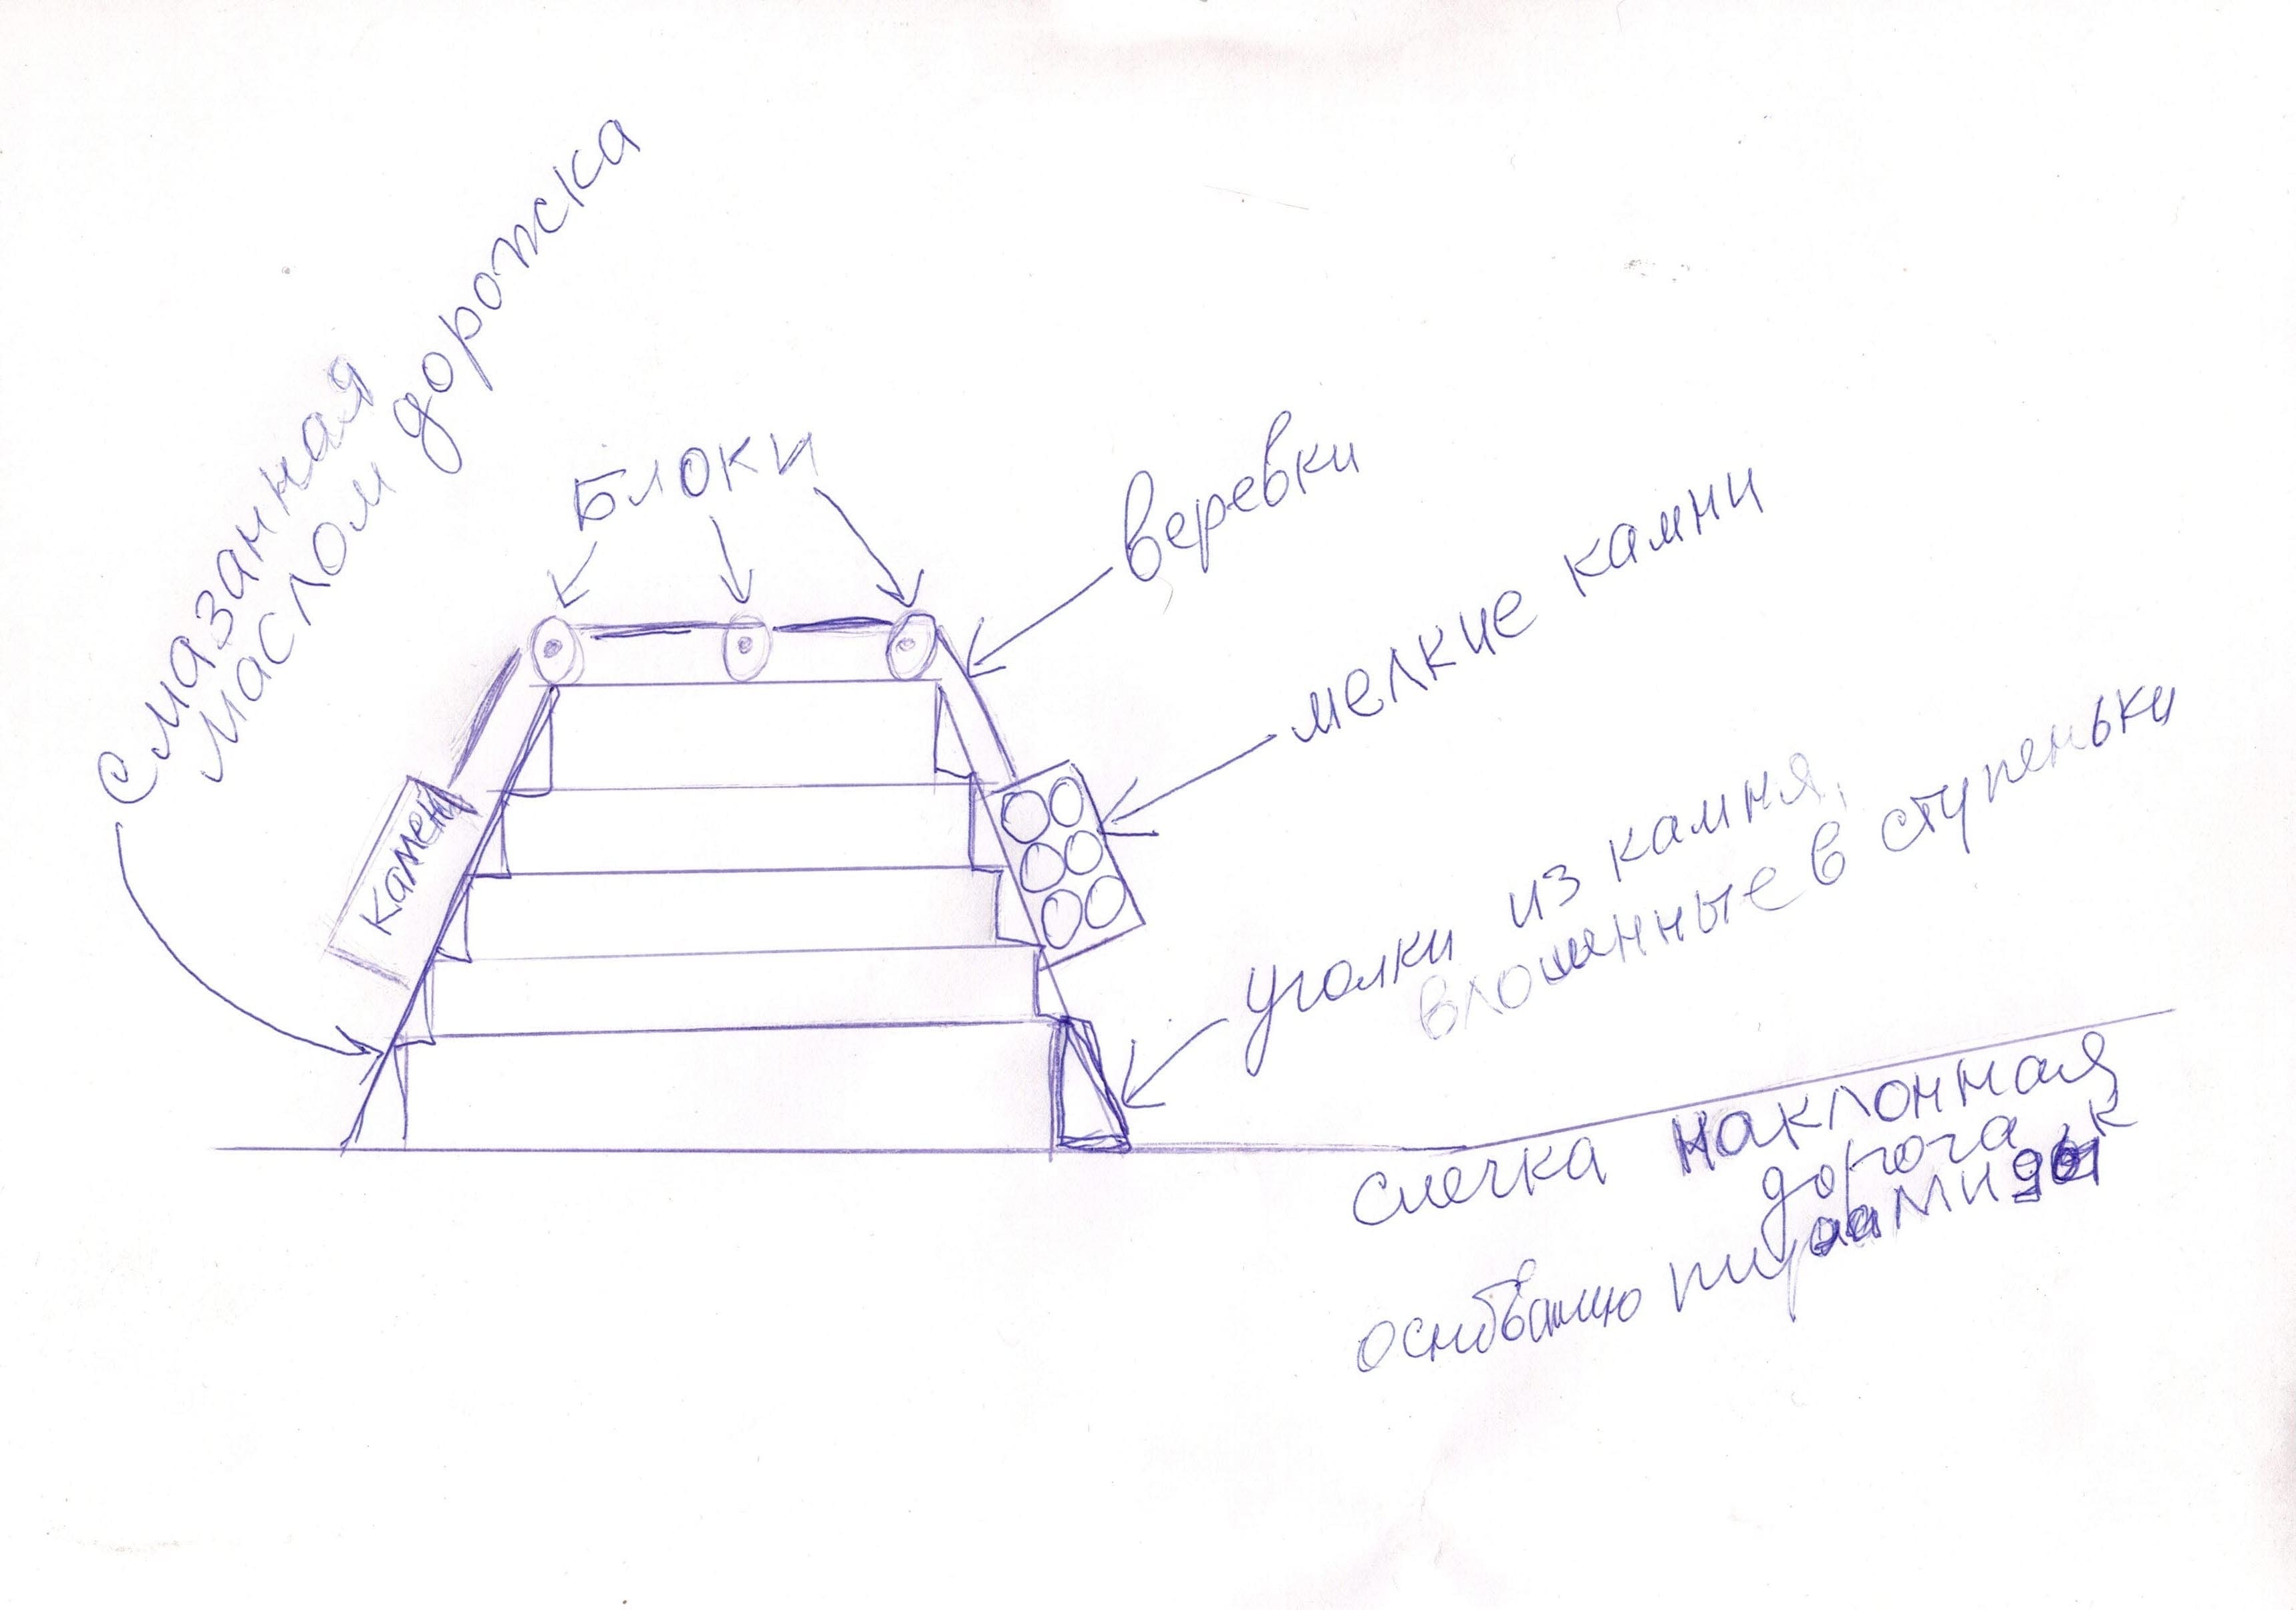 смазанная
маслом дорожка
Блоки
веревки
мелкие камни
камень
уголки из камня,
вложенные в ступеньки
слегка наклонная
дорога к
основанию пирамиды